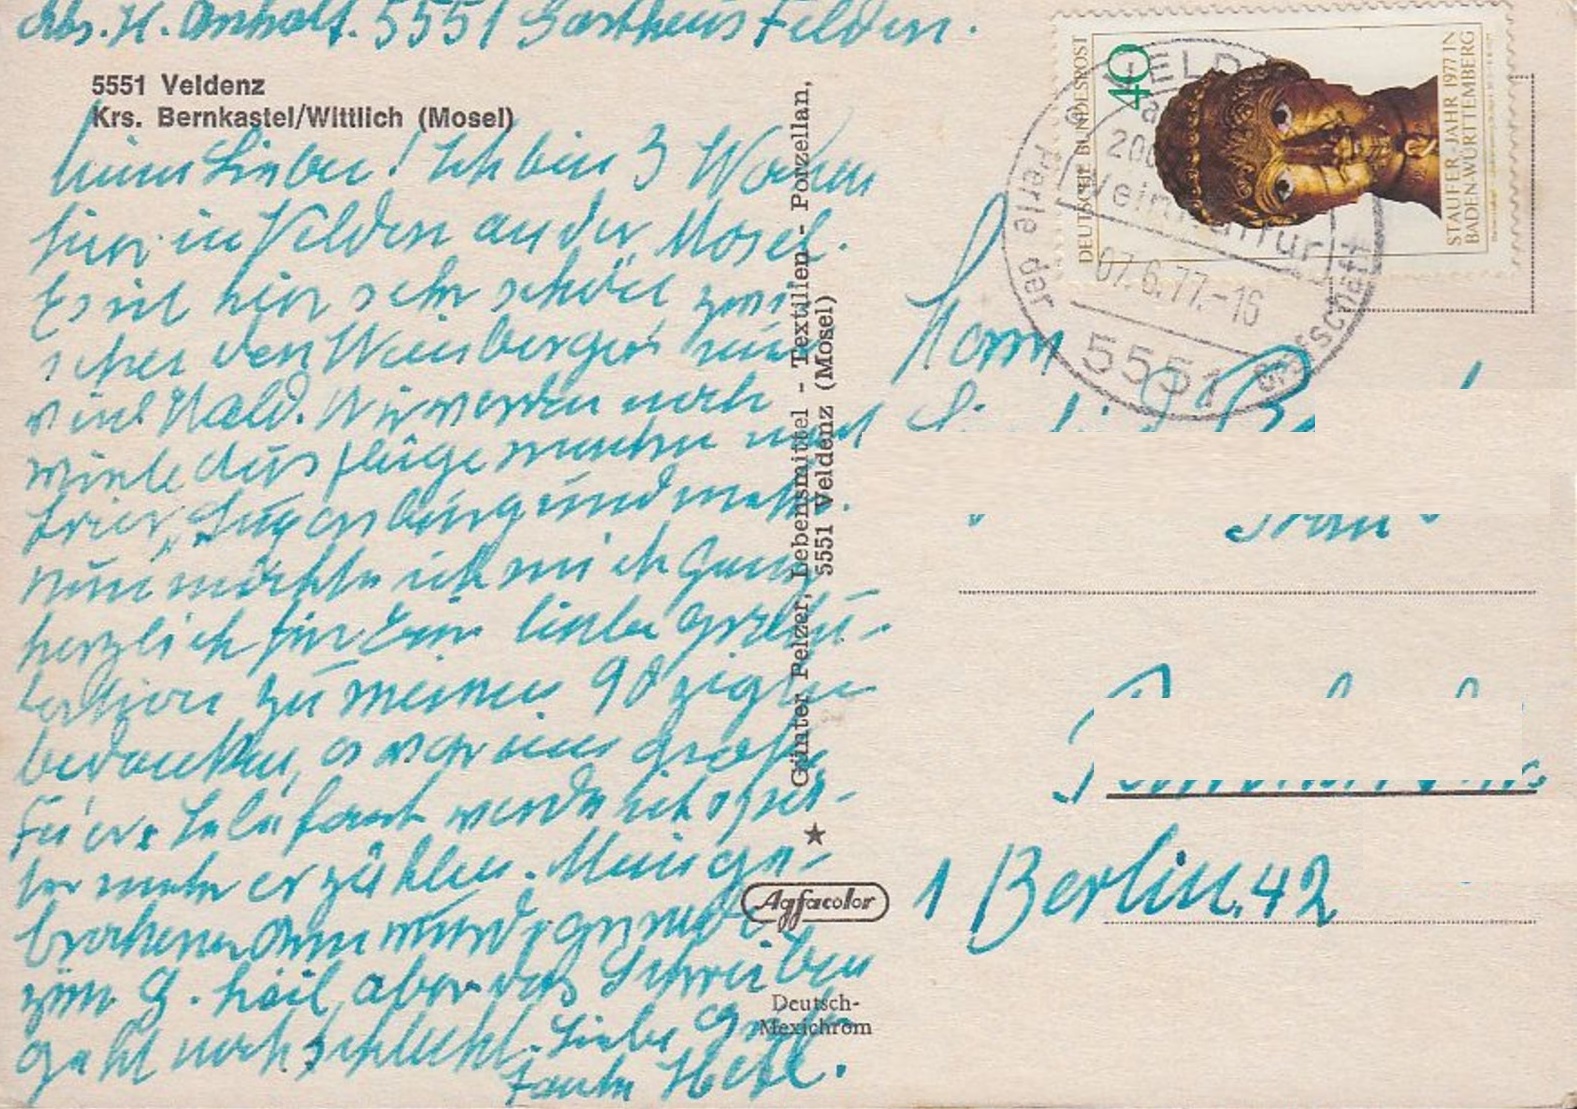 Abs. H. Anholt. 5551 Gasthaus Felden.
5551 Veldenz
Krs. Bernkastel/Wittlich (Mosel)
Meine Lieben! Ich bin 3 Wochen
hier in Velden an der Mosel.
Es ist hier sehr schön zwi
schen den Weinbergen und
viel Wald. Wir werden noch
viele Ausflüge machen nach
Trier, Luxenburg und mehr.
Nun möchte ich mich ganz
herzlich für Eure liebe Gratu-
lation zu meinen 90 zigten
bedanken, es war eine große
Feier. Telefant werde ich später
mehr erzählen. Mein ge-
brochener Arm wurde gerade
zum G. heil, aber das Schreiben
geht noch schlecht. Liebe Grüße
Tante Hete.
Günter Pelzer, Lebensmittel - Textilien - Porzellan,
5551 Veldenz (Mosel)
Agfacolor
Deutsch-
Mexichrom
DEUTSCHE BUNDESPOST
40
STAUFER JAHR 1977 IN
BADEN-WÜRTTEMBERG
VELD
200
Wein
07.6.77.-16
5551
Perle der
Herrn
Frau
1 Berlin 42